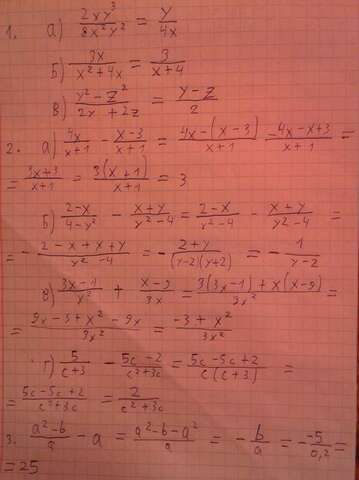 1. а) 2xy³/8x²y² = y/4x
б) 3x/x²+4x = 3/x+4
в) y²-z²/2x+2z = y-z/2
2. а) 4x/x+1 - x-3/x+1 = 4x-(x-3)/x+1 = 4x-x+3/x+1 =
= 3x+3/x+1 = 3(x+1)/x+1 = 3
б) 2-x/4-y² - x+y/y²-4 = 2-x/y²-4 - x+y/y²-4 =
= - 2-x+x+y/y²-4 = - 2+y/(y-2)(y+2) = - 1/y-2
в) 3x-1/x² + x-9/3x = 3(3x-1)+x(x-9)/3x² =
= 9x-3+x²-9x/3x² = -3+x²/3x²
г) 5/c+3 - 5c-2/c²+3c = 5c-5c+2/c(c+3) =
= 5c-5c+2/c²+3c = 2/c²+3c
3. a²-b/a - a = a²-b-a²/a = - b/a = - -5/0,2 =
= 25